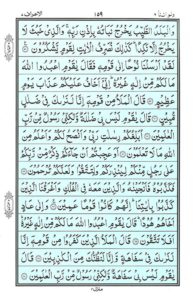 ولو اننا ٨ ١٥٩ الاعراف ٧
وَالْبَلَدُ الطَّيِّبُ يَخْرُجُ نَبَاتُهٗ بِاِذْنِ رَبِّهٖ وَالَّذِيْ خَبُثَ لَا
يَخْرُجُ اِلَّا نَكِدًا كَذٰلِكَ نُصَرِّفُ الْاٰيٰتِ لِقَوْمٍ يَّشْكُرُوْنَ
لَقَدْ اَرْسَلْنَا نُوْحًا اِلٰى قَوْمِهٖ فَقَالَ يٰقَوْمِ اعْبُدُوا اللّٰهَ
مَا لَكُمْ مِّنْ اِلٰهٍ غَيْرُهٗ اِنِّيْ اَخَافُ عَلَيْكُمْ عَذَابَ يَوْمٍ
عَظِيْمٍ قَالَ الْمَلَاُ مِنْ قَوْمِهٖ اِنَّا لَنَرٰىكَ فِيْ ضَلٰلٍ
مُّبِيْنٍ قَالَ يٰقَوْمِ لَيْسَ بِيْ ضَلٰلَةٌ وَّلٰكِنِّيْ رَسُوْلٌ مِّنْ رَّبِّ
الْعٰلَمِيْنَ اُبَلِّغُكُمْ رِسٰلٰتِ رَبِّيْ وَاَنْصَحُ لَكُمْ وَاَعْلَمُ مِنَ
اللّٰهِ مَا لَا تَعْلَمُوْنَ اَوَعَجِبْتُمْ اَنْ جَآءَكُمْ ذِكْرٌ مِّنْ رَّبِّكُمْ
عَلٰى رَجُلٍ مِّنْكُمْ لِيُنْذِرَكُمْ وَلِتَتَّقُوْا وَلَعَلَّكُمْ تُرْحَمُوْنَ
فَكَذَّبُوْهُ فَاَنْجَيْنٰهُ وَالَّذِيْنَ مَعَهٗ فِي الْفُلْكِ وَاَغْرَقْنَا الَّذِيْنَ
كَذَّبُوْا بِاٰيٰتِنَا اِنَّهُمْ كَانُوْا قَوْمًا عَمِيْنَ وَاِلٰى عَادٍ
اَخَاهُمْ هُوْدًا قَالَ يٰقَوْمِ اعْبُدُوا اللّٰهَ مَا لَكُمْ مِّنْ اِلٰهٍ غَيْرُهٗ
اَفَلَا تَتَّقُوْنَ قَالَ الْمَلَاُ الَّذِيْنَ كَفَرُوْا مِنْ قَوْمِهٖٓ اِنَّا
لَنَرٰىكَ فِيْ سَفَاهَةٍ وَّاِنَّا لَنَظُنُّكَ مِنَ الْكٰذِبِيْنَ قَالَ
يٰقَوْمِ لَيْسَ بِيْ سَفَاهَةٌ وَّلٰكِنِّيْ رَسُوْلٌ مِّنْ رَّبِّ الْعٰلَمِيْنَ
منزل ٢